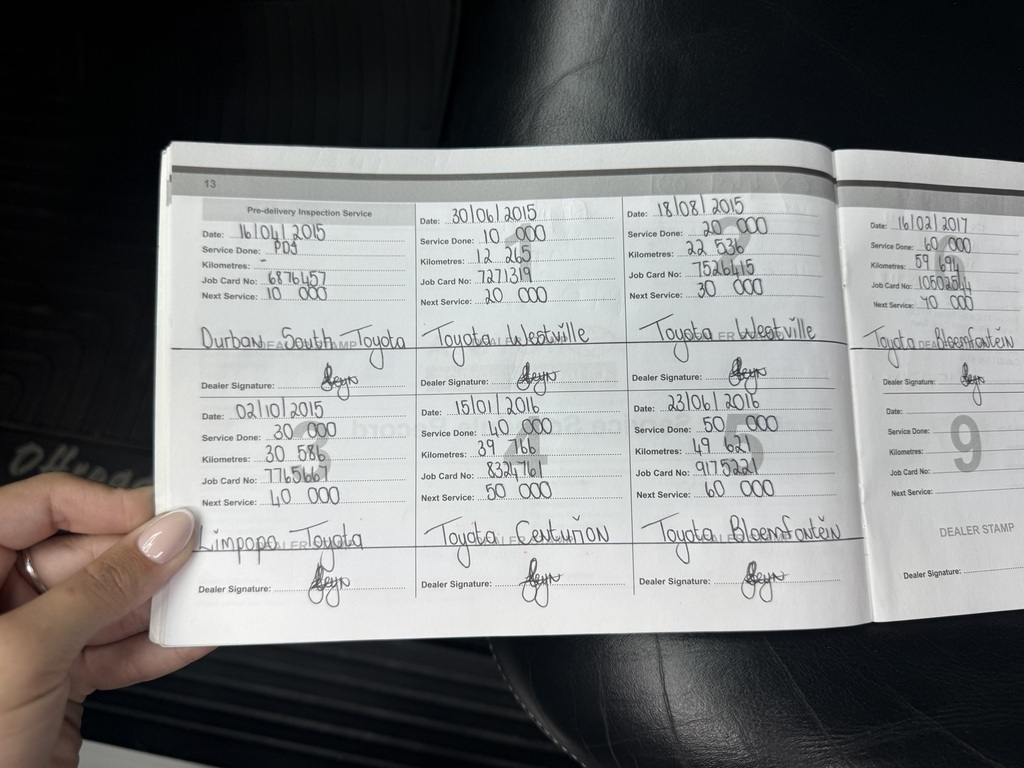 13
Pre-delivery Inspection Service
Date: 16/04/2015
Service Done: PDI
Kilometres: -
Job Card No: 6876457
Next Service: 10 000
Durban South Toyota
Dealer Signature:
Date: 30/06/2015
Service Done: 10 000
Kilometres: 12 265
Job Card No: 7271319
Next Service: 20 000
Toyota Westville
Dealer Signature:
Date: 18/08/2015
Service Done: 20 000
Kilometres: 22 536
Job Card No: 7526415
Next Service: 30 000
Toyota Westville
Dealer Signature:
Date: 02/10/2015
Service Done: 30 000
Kilometres: 30 586
Job Card No:
Next Service: 40 000
3
Limpopo Toyota
Dealer Signature:
Date: 15/01/2016
Service Done: 40 000
Kilometres: 39 766
Job Card No: 8324761
Next Service: 50 000
4
Toyota Centurion
Dealer Signature:
Date: 23/06/2016
Service Done: 50 000
Kilometres: 49 621
Job Card No: 9175221
Next Service: 60 000
5
Toyota Bloemfontein
Dealer Signature:
Date: 16/02/2017
Service Done: 60 000
Kilometres: 59 694
Job Card No:
Next Service: 70 000
6
Toyota Bloemfontein
Dealer Signature:
Date:
Service Done:
Kilometres:
Job Card No:
Next Service:
9
DEALER STAMP
Dealer Signature: